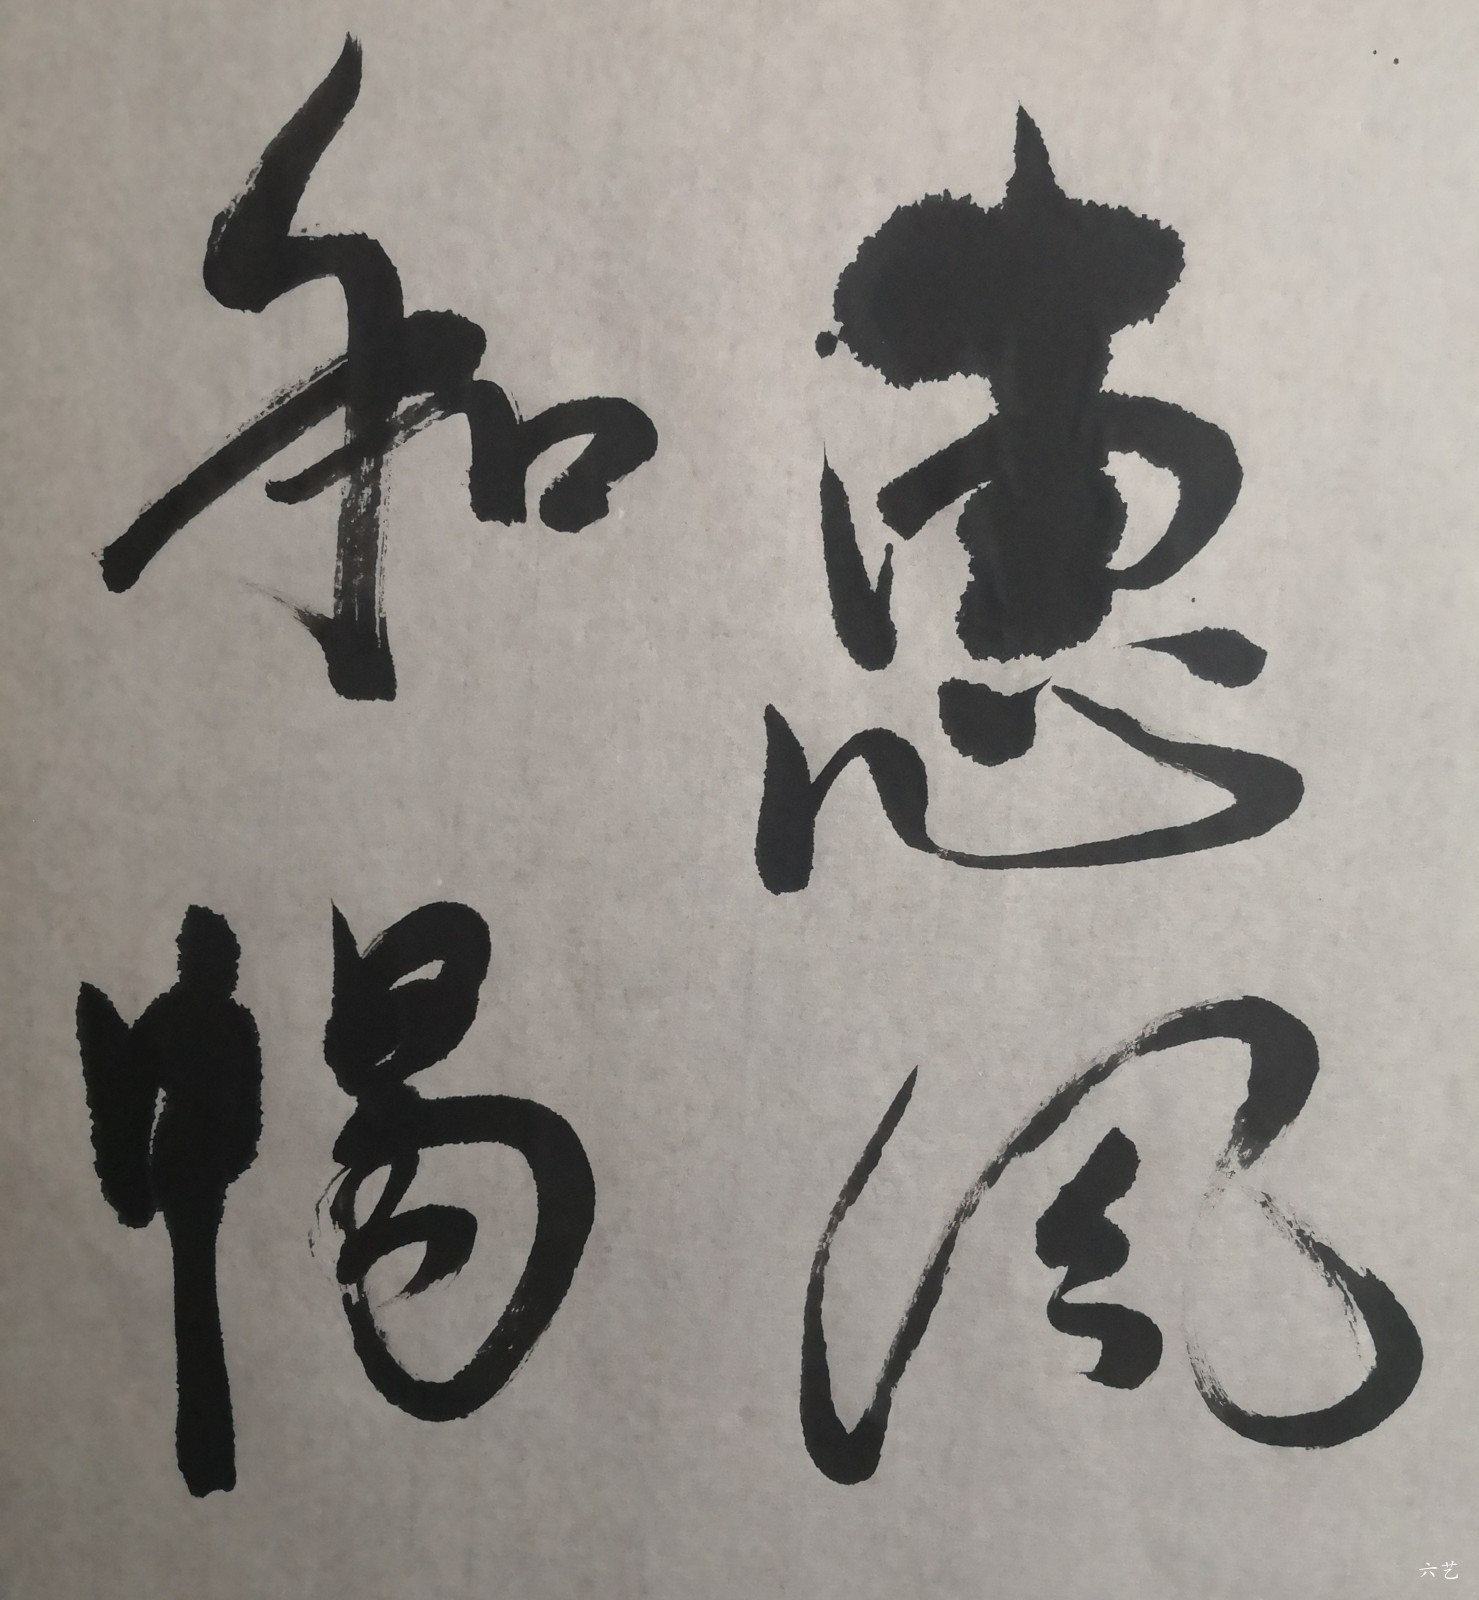 惠风
和畅
六艺